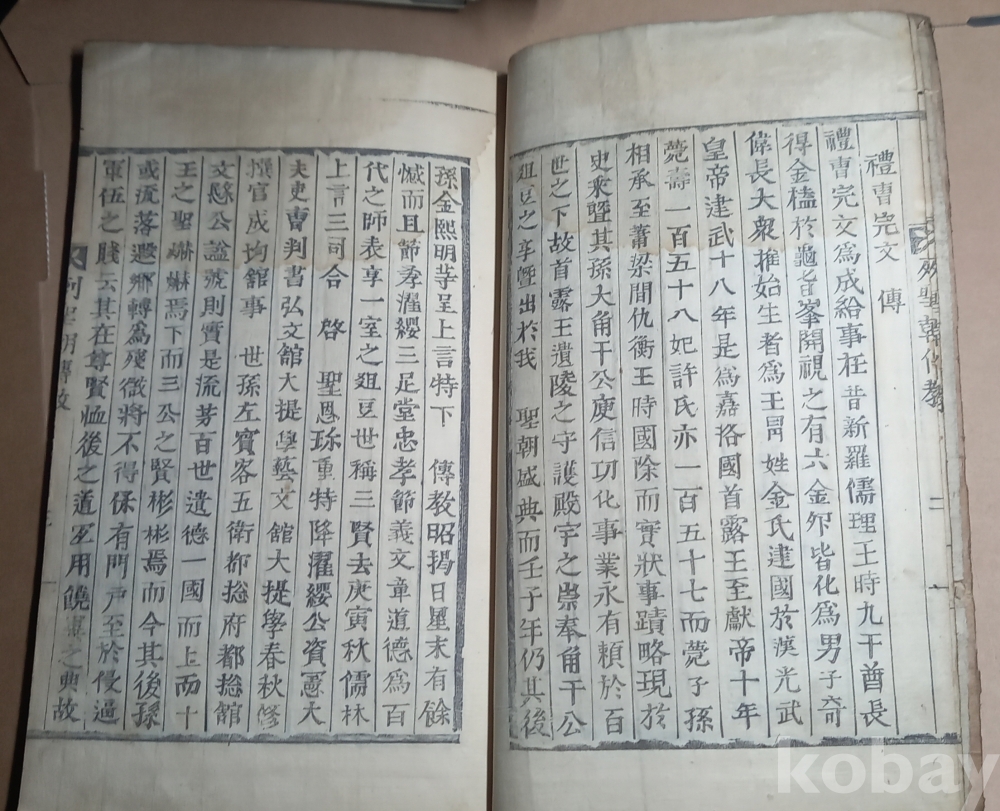 列聖朝傳教
二
禮曹完文 傳
禮曹完文爲成給事在昔新羅儒理王時九干酋長
得金榼於龜旨峯開視之有六金卵皆化爲男子奇
偉長大衆推始生者爲王冐姓金氏建國於漢光武
皇帝建武十八年是爲嘉洛國首露王至獻帝十年
薨壽一百五十八妃許氏亦一百五十七而薨子孫
相承至蕭梁間仇衡王時國除而實狀事蹟略現於
史來曁其孫大角干公庾信功化事業永有賴於百
世之下故首露王遺陵之守護殿宇之崇奉角干公
俎豆之享曁出於我 聖朝盛典而壬子年仍其後
孫金熙明等呈上言特下 傳教昭揭日星末有餘
憾而且節孝濯纓三足堂忠孝節義文章道德爲百
代之師表享一室之俎豆世稱三賢去庚寅秋儒林
上言三司合 啓 聖恩珎重特降濯纓公資憲大
夫吏曹判書弘文館大提學藝文館大提學春秋修
撰官成均館事 世孫左賓客五衛都摠府都摠館
文愍公諡號則實是流芳百世遺德一國而上而十
王之聖㷠㷠焉下而三公之賢彬彬焉而今其後孫
或流落遐鄉轉爲殘微將不得保有門戶至於侵逼
軍伍之賤云其在尊賢恤後之道互用饒
之典故
列聖朝傳教